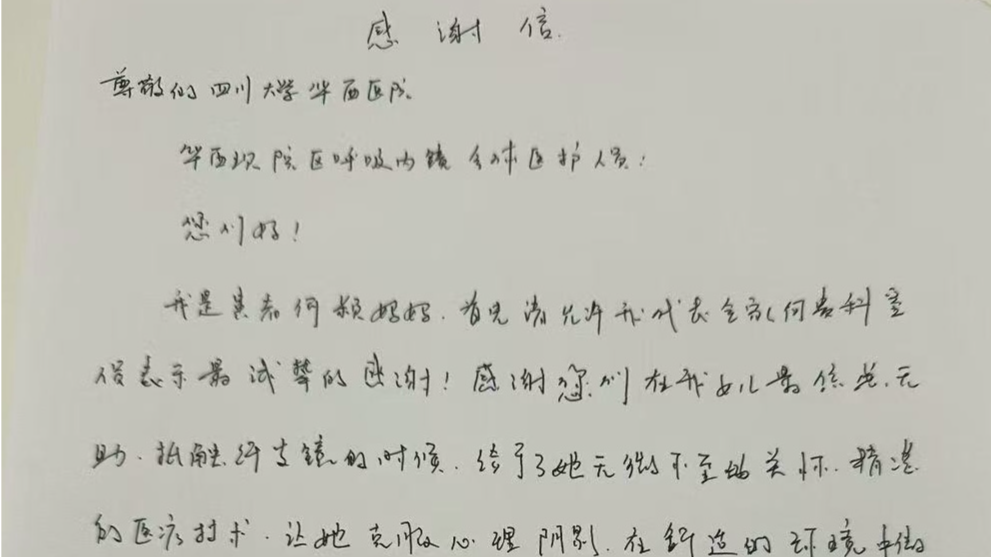 感谢信
尊敬的四川大学华西医院
华西坝院区呼吸内镜全体医护人员：
您们好！
我是患者何颖妈妈，首先请允许我代表全家向贵科室
假表示最诚挚的感谢！感谢您们在我女儿最焦虑、无
助、抵触纤支镜的时候，给予了她无微不至地关怀、精湛
的医疗技术，让她克服心理阴影，在舒适的环境中做